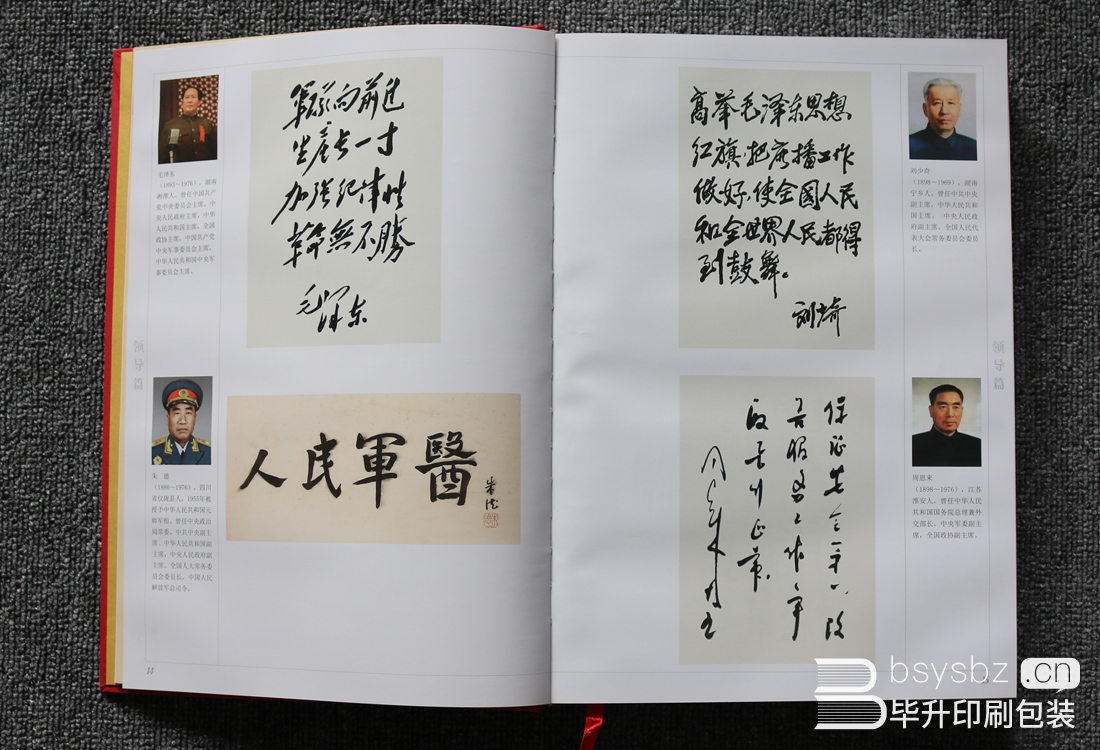 毛泽东
（1893～1976），湖南
湘潭人，曾任中国共产
党中央委员会主席、中
央人民政府主席、中华
人民共和国主席、全国
政协主席、中国共产党
中央军事委员会主席、
中华人民共和国中央军
事委员会主席。
军队向前进
生産长一寸
加强纪律性
革命無不勝
毛泽东
领导篇
朱 德
（1886～1976），四川
省仪陇县人，1955年被
授予中华人民共和国元
帅军衔，曾任中央政治
局常委、中共中央副主
席、中华人民共和国副
主席、中央人民政府副
主席、全国人大常务委
员会委员长，中国人民
解放军总司令。
人民軍醫
朱德
14
高举毛泽东思想
红旗，把广播工作
做好，使全國人民
和全世界人民都得
到鼓舞。
刘少奇
刘少奇
（1898～1969），湖南
宁乡人，曾任中共中央
副主席、中华人民共和
国主席、中央人民政
府副主席、全国人民代
表大会常务委员会委员
长。
领导篇
保证安全第一，改
善服务工作，争
取飞行正常
周恩来
周恩来
（1898～1976），江苏
淮安人，曾任中华人民
共和国国务院总理兼外
交部长，中央军委副主
席，全国政协副主席。
bsysbz.cn
毕升印刷包装